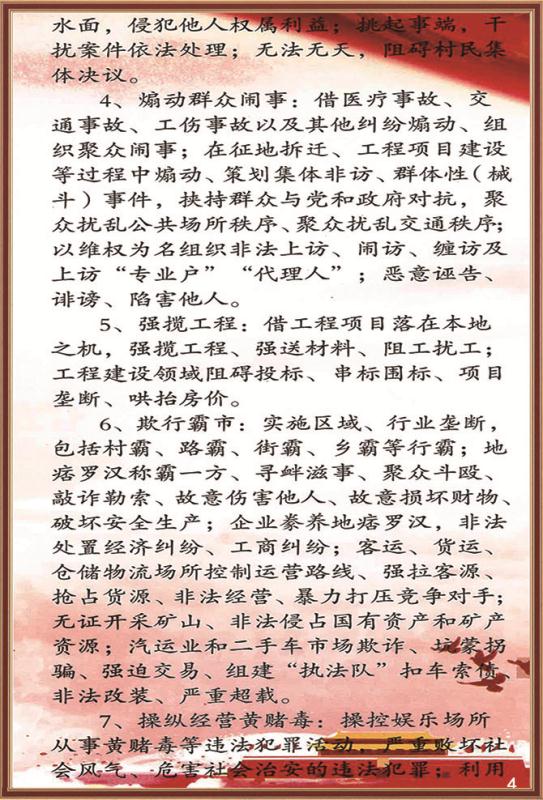 水面，侵犯他人权属利益；挑起事端，干
扰案件依法处理；无法无天，阻碍村民集
体决议。
4、煽动群众闹事：借医疗事故、交
通事故、工伤事故以及其他纠纷煽动、组
织聚众闹事；在征地拆迁、工程项目建设
等过程中煽动、策划集体非访、群体性（械
斗）事件，挟持群众与党和政府对抗，聚
众扰乱公共场所秩序、聚众扰乱交通秩序；
以维权为名组织非法上访、闹访、缠访及
上访“专业户”“代理人”；恶意诬告、
诽谤、陷害他人。
5、强揽工程：借工程项目落在本地
之机，强揽工程、强送材料、阻工扰工；
工程建设领域阻碍投标、串标围标、项目
垄断、哄抬房价。
6、欺行霸市：实施区域、行业垄断，
包括村霸、路霸、街霸、乡霸等行霸；地
痞罗汉称霸一方、寻衅滋事、聚众斗殴、
敲诈勒索、故意伤害他人、故意损坏财物、
破坏安全生产；企业豢养地痞罗汉，非法
处置经济纠纷、工商纠纷；客运、货运、
仓储物流场所控制运营路线、强拉客源、
抢占货源、非法经营、暴力打压竞争对手；
无证开采矿山、非法侵占国有资产和矿产
资源；汽运业和二手车市场欺诈、坑蒙拐
骗、强迫交易、组建“执法队”扣车索债、
非法改装、严重超载。
7、操纵经营黄赌毒：操控娱乐场所
从事黄赌毒等违法犯罪活动，严重败坏社
会风气、危害社会治安的违法犯罪；利用
4